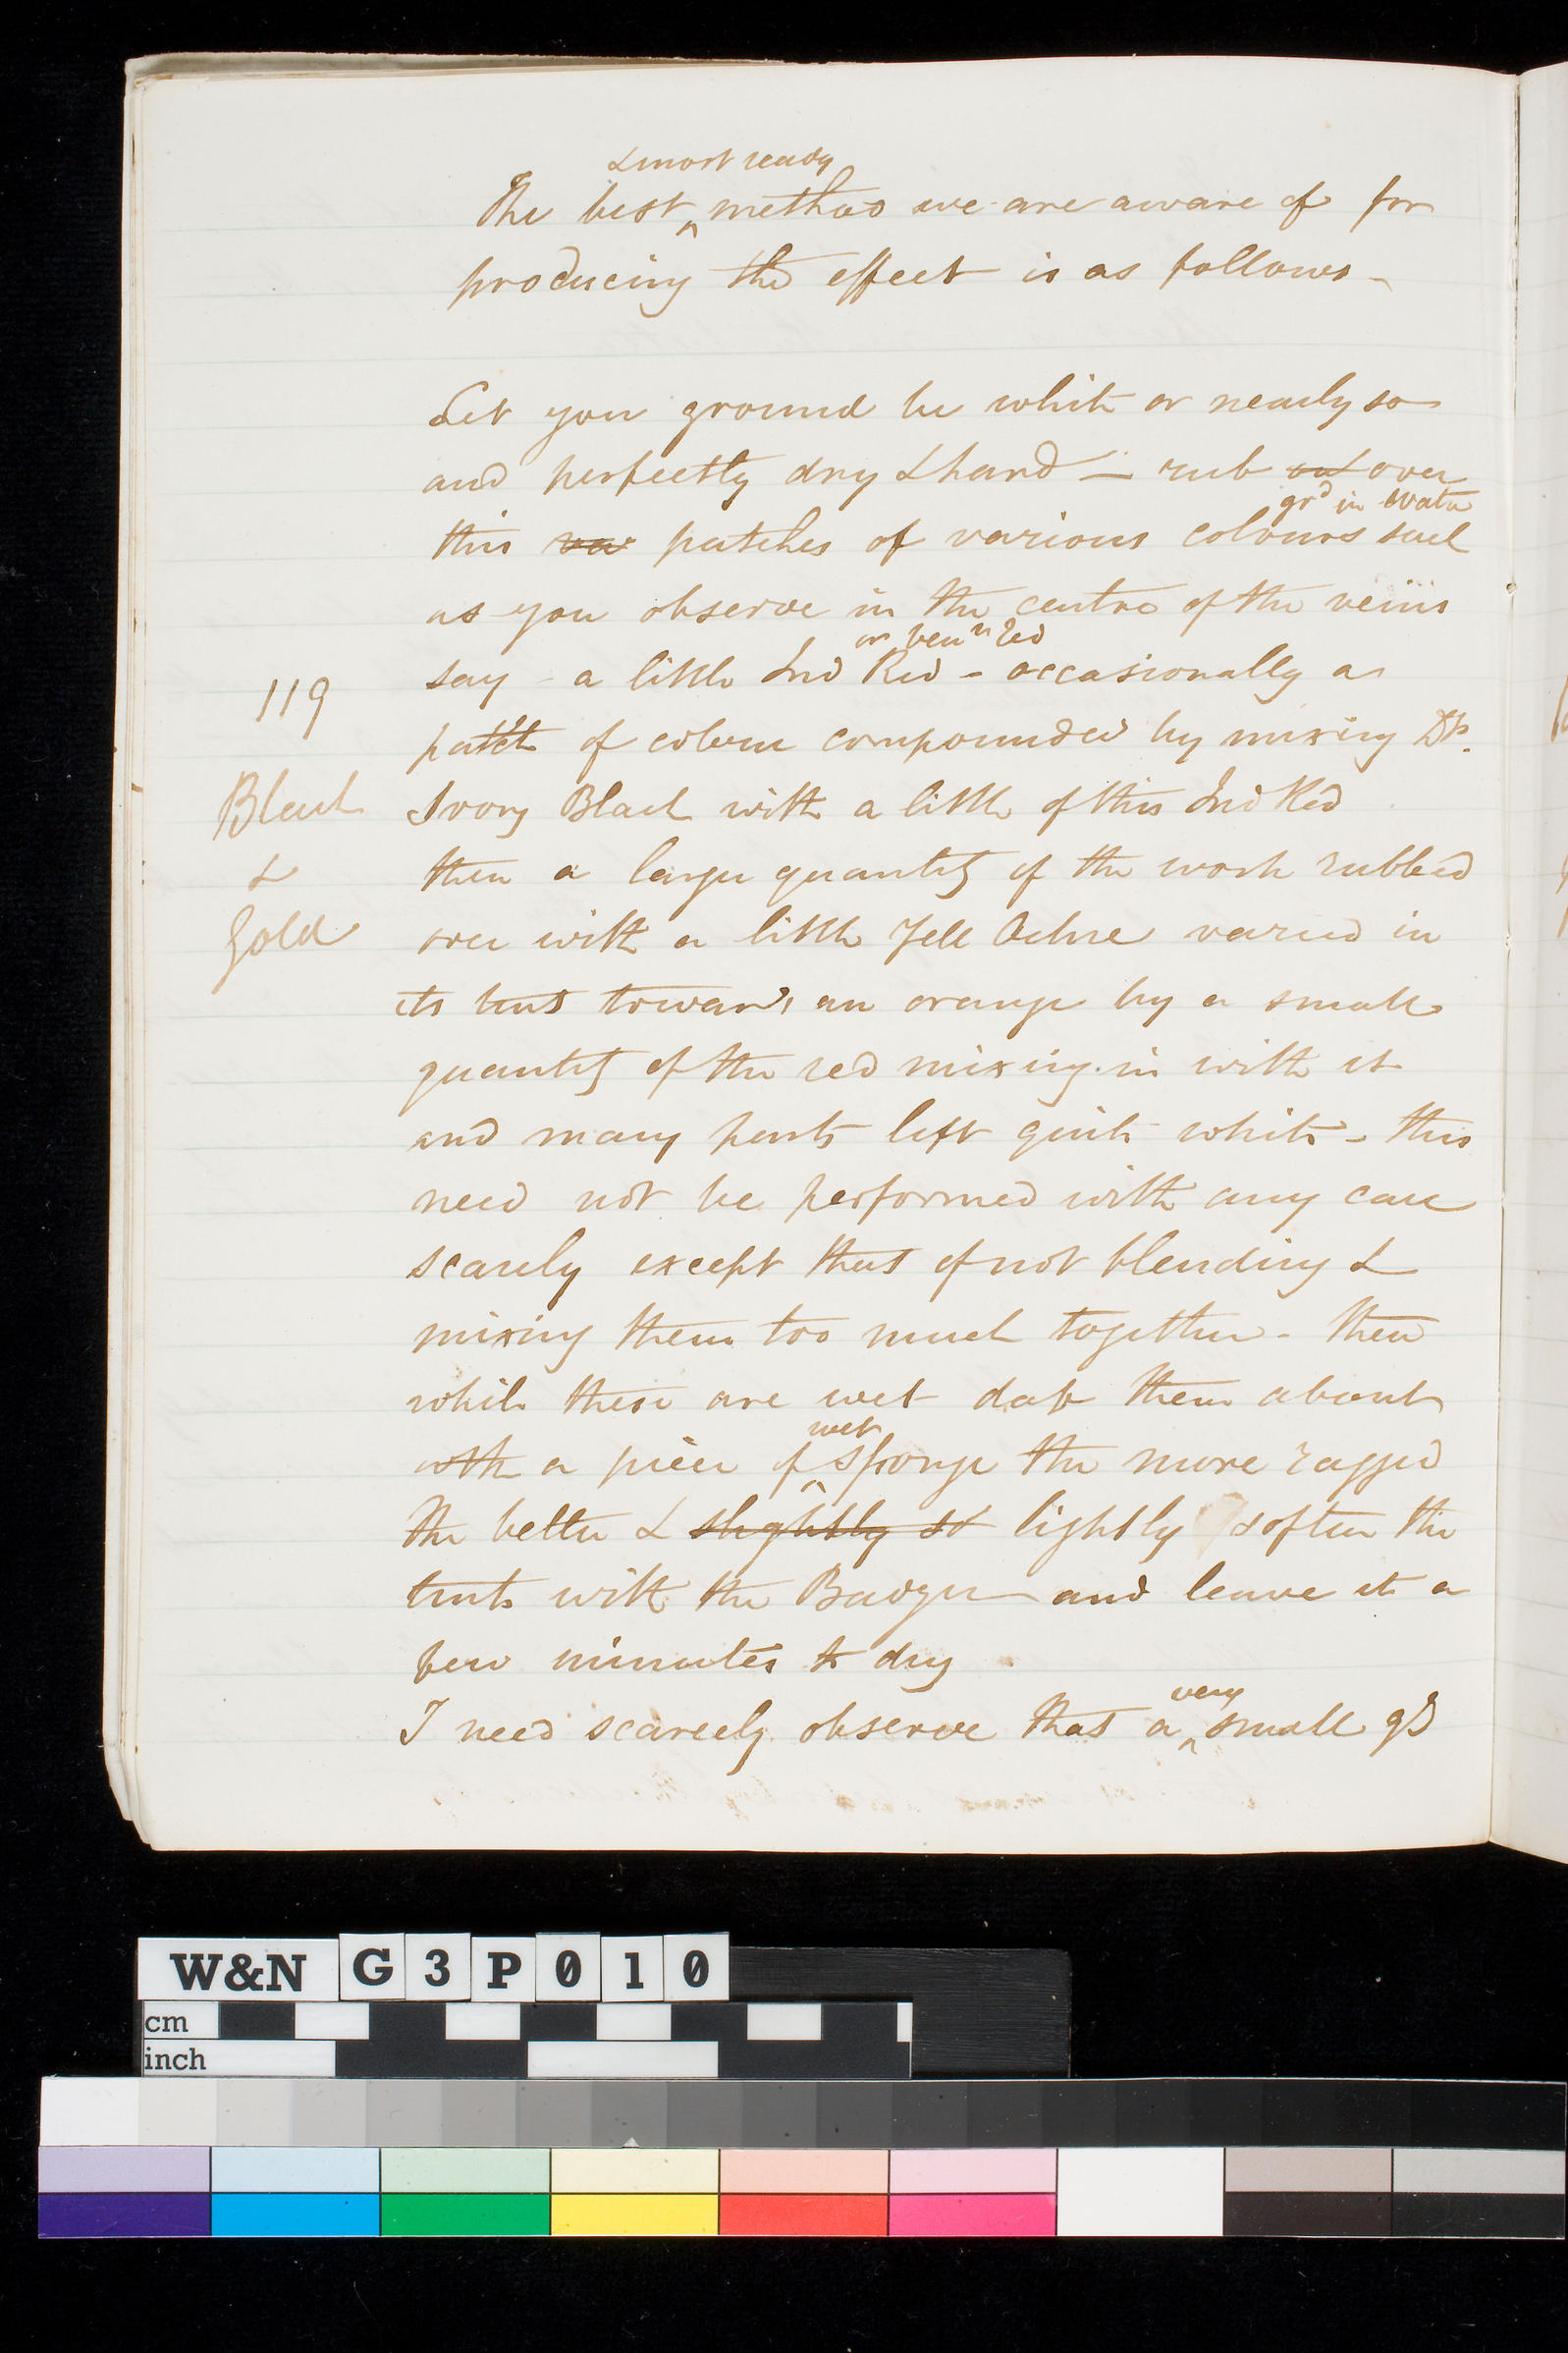 & most ready
The best method we are aware of for
producing the effect is as follows -
Let you ground be white or nearly so
and perfectly dry & hard - rub out over
grd in water
this va patches of various colours such
as you observe in the centre of the veins
or Venn Red
say - a little Ind Red - occasionally a
119
patch of colour compounded by mixing
Black
Ivory Black with a little of this Ind Red
&
then a larger quantity of the work rubbed
Gold
over with a little Yell Ochre varied in
its tint towards an orange by a small
quantity of the red mixing in with it
and many parts left quite white - this
need not be performed with any care
scarcely except that of not blending &
mixing them too much together - then
while these are wet dab them about
wet
with a piece of sponge the more ragged
the better & slightly so lightly soften the
tints with the Badger and leave it a
few minutes to dry
very
I need scarcely observe that a small qy
W&N G3P010
cm
inch